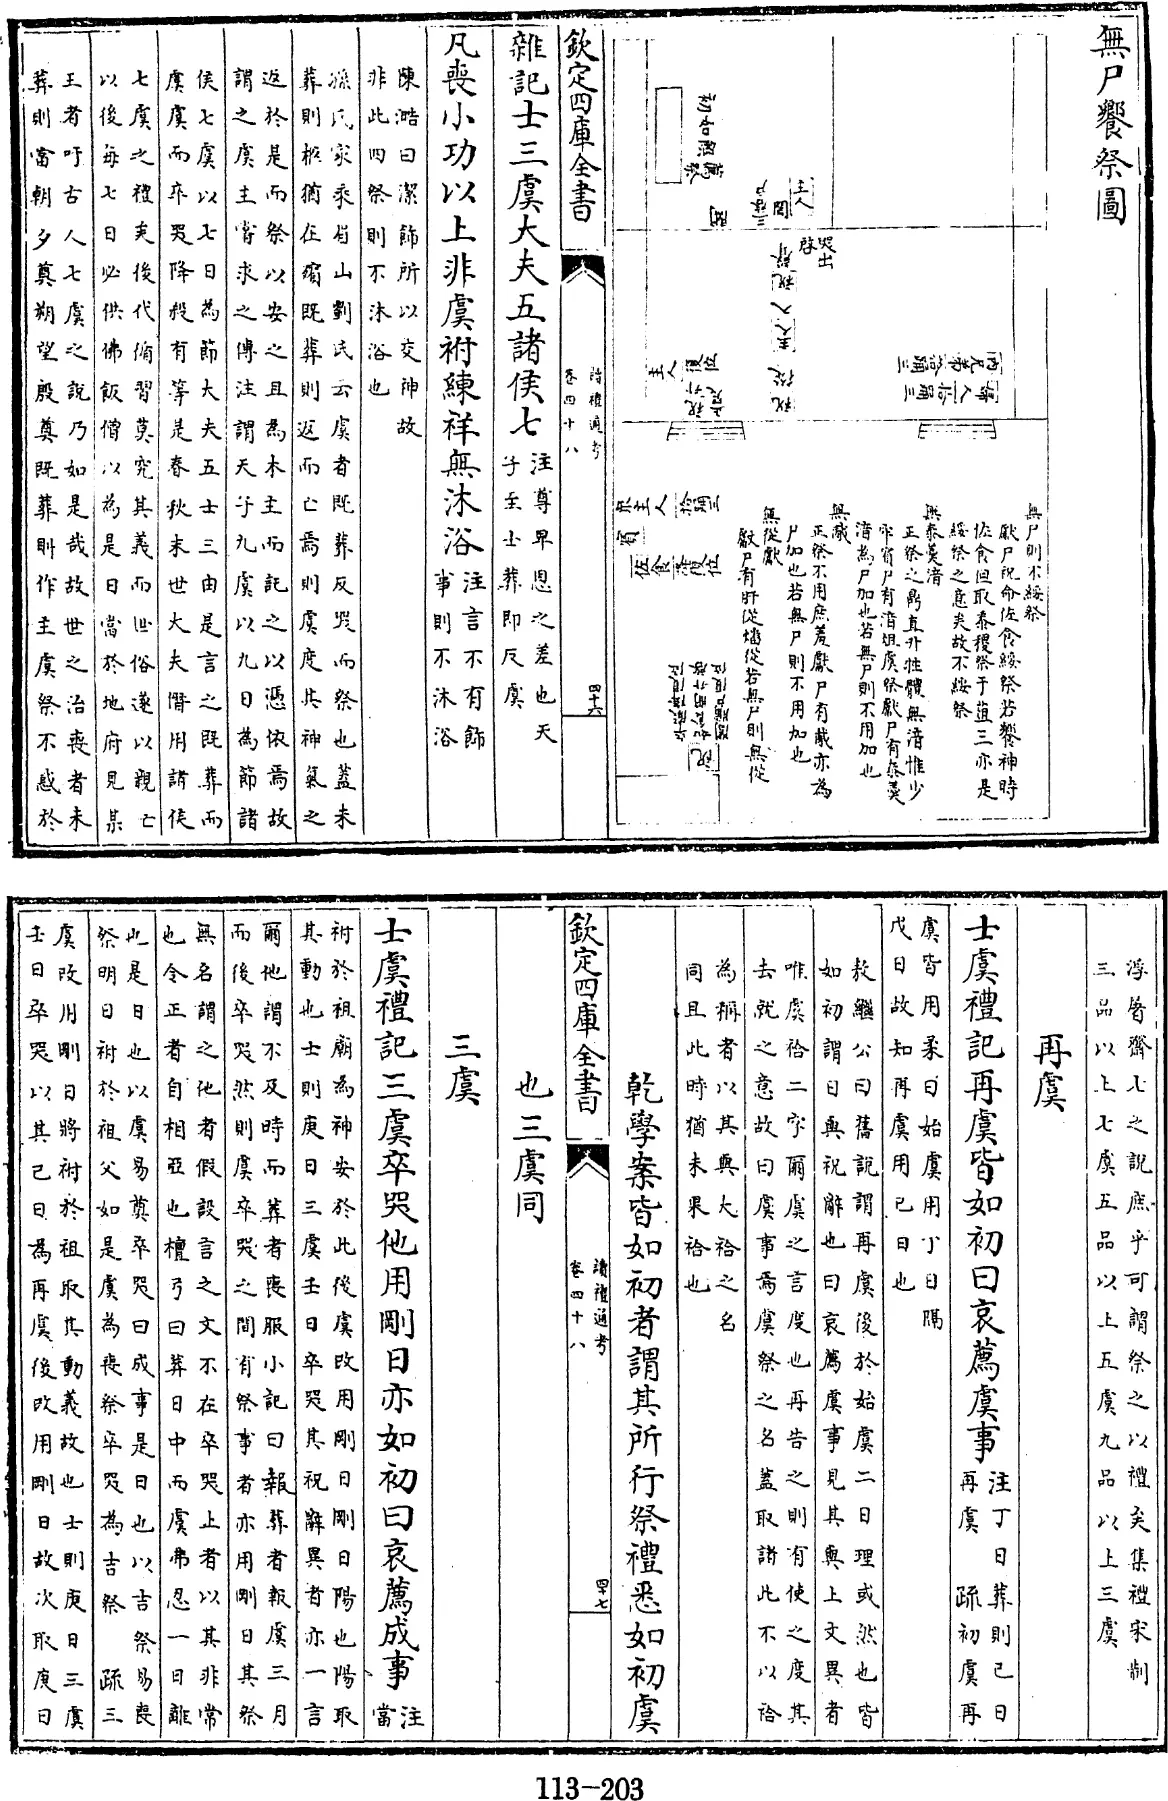 無尸饗祭圖
主人
哭出
主人
復位
無尸則不綏祭
獻尸祝命佐食綏祭若饗神時
佐食但取黍稷祭于苴三亦是
綏祭之意矣故不綏祭
無泰羹湇
正祭之鼎直升牲體無湇惟少
牢賓尸有湇俎虞祭獻尸有泰羹
湇為尸加也若無尸則不用加也
無胾
正祭不用庶羞獻尸有胾亦為
尸加也若無尸則不用加也
無從獻
獻尸有肝從燔從若無尸則無從
欽定四庫全書
讀禮通考
卷四十八
四十六
雜記士三虞大夫五諸侯七
注尊卑恩之差也天
子至士葬即反虞
凡喪小功以上非虞祔練祥無沐浴
注言不有飾
事則不沐浴
陳澔曰潔飾所以交神故
非此四祭則不沐浴也
孫氏家乘眉山劉氏云虞者既葬反哭而祭也蓋未
葬則柩猶在殯既葬則返而亡焉則虞度其神氣之
返於是而祭以安之且為木主而託之以憑依焉故
謂之虞主嘗求之傳注謂天子九虞以九日為節諸
侯七虞以七日為節大夫五士三由是言之既葬而
虞虞而卒哭降殺有等是春秋末世大夫僭用諸侯
七虞之禮矣後代循習莫究其義而世俗遂以親亡
以後每七日必供佛飯僧以為是日當於地府見某
王者吁古人七虞之說乃如是哉故世之治喪者未
葬則當朝夕奠朔望殷奠既葬則作主虞祭不惑於
浮屠齋七之說庶乎可謂祭之以禮矣集禮宋制
三品以上七虞五品以上五虞九品以上三虞
再虞
士虞禮記再虞皆如初曰哀薦虞事
注丁日葬則己日
再虞 疏初虞再
虞皆用柔日始虞用丁日隔
戊日故知再虞用己日也
敖繼公曰舊說謂再虞後於始虞二日理或然也皆
如初謂日與祝辭也曰哀薦虞事見其與上文異者
唯虞祫二字爾虞之言度也再告之則有使之度其
去就之意故曰虞事焉虞祭之名蓋取諸此不以祫
為稱者以其與大祫之名
同且此時猶未果祫也
乾學案皆如初者謂其所行祭禮悉如初虞
欽定四庫全書
讀禮通考
卷四十八
四十七
也三虞同
三虞
士虞禮記三虞卒哭他用剛日亦如初曰哀薦成事
注
當
祔於祖廟為神安於此後虞改用剛日剛日陽也陽取
其動也士則庚日三虞壬日卒哭其祝辭異者亦一言
爾他謂不及時而葬者喪服小記曰報葬者報虞三月
而後卒哭然則虞卒哭之間有祭事者亦用剛日其祭
無名謂之他者假設言之文不在卒哭上者以其非常
也令正者自相亞也檀弓曰葬日中而虞弗忍一日離
也是日也以虞易奠卒哭曰成事是日也以吉祭易喪
祭明日祔於祖父如是虞為喪祭卒哭為吉祭 疏三
虞改用剛日將祔於祖取其動義故也士則庚日三虞
壬日卒哭以其己日為再虞後改用剛日故次取庚日
113-203